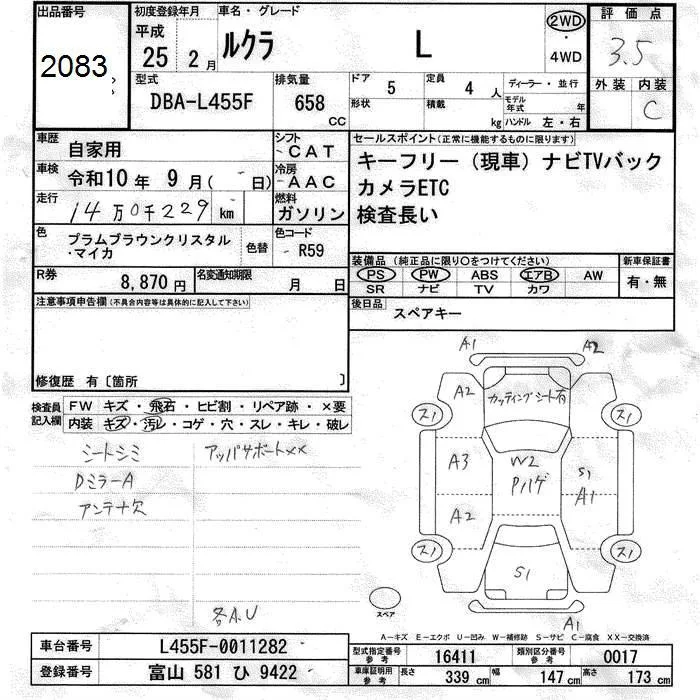 出品番号
2083
初度登録年月
平成
25 2 月
車名・グレード
ルクラ L
2WD
・
4WD
評価点
3.5
外装 内装
C
型式
DBA-L455F
排気量
658 CC
ドア 5
定員 4 人
形状
積載 kg
ディーラー・並行
モデル年式 年
ハンドル 左・右
車歴 自家用
シフト CAT
車検 令和10年 9月( - 日)
冷房 AAC
走行 14万0千229 km
燃料 ガソリン
色 プラムブラウンクリスタル・マイカ
色替
色コード R59
R券 8,870円
名変通知期限 月 日
セールスポイント(正常に機能するものに限ります)
キーフリー(現車)ナビTVバック
カメラETC
検査長い
装備品(純正品に限り○をつけてください)
PS PW ABS エアB AW
SR ナビ TV カワ
新車保証書
有・無
後日品
スペアキー
注意事項申告欄(不具合内容等は具体的に記入して下さい)
修復歴 有〔箇所 〕
検査員記入欄
FW キズ・飛石・ヒビ割・リペア跡・×要
内装 キズ・汚レ・コゲ・穴・スレ・キレ・破レ
シートシミ
DミラーA
アンテナ欠
アッパサポート××
各A.U
A1 A2
A2
カッティングシート有
スノ スノ
A3
W2
Pハゲ
S1
A1
A2
スノ スノ
S1
A1
スペア
A-キズ E-エクボ U-凹み W-補修跡 S-サビ C-腐食 XX-交換済
車台番号 L455F-0011282
登録番号 富山 581 ひ 9422
型式指定番号 参考 16411
類別区分番号 参考 0017
車庫証明用 参考
長さ 339 cm
幅 147 cm
高さ 173 cm